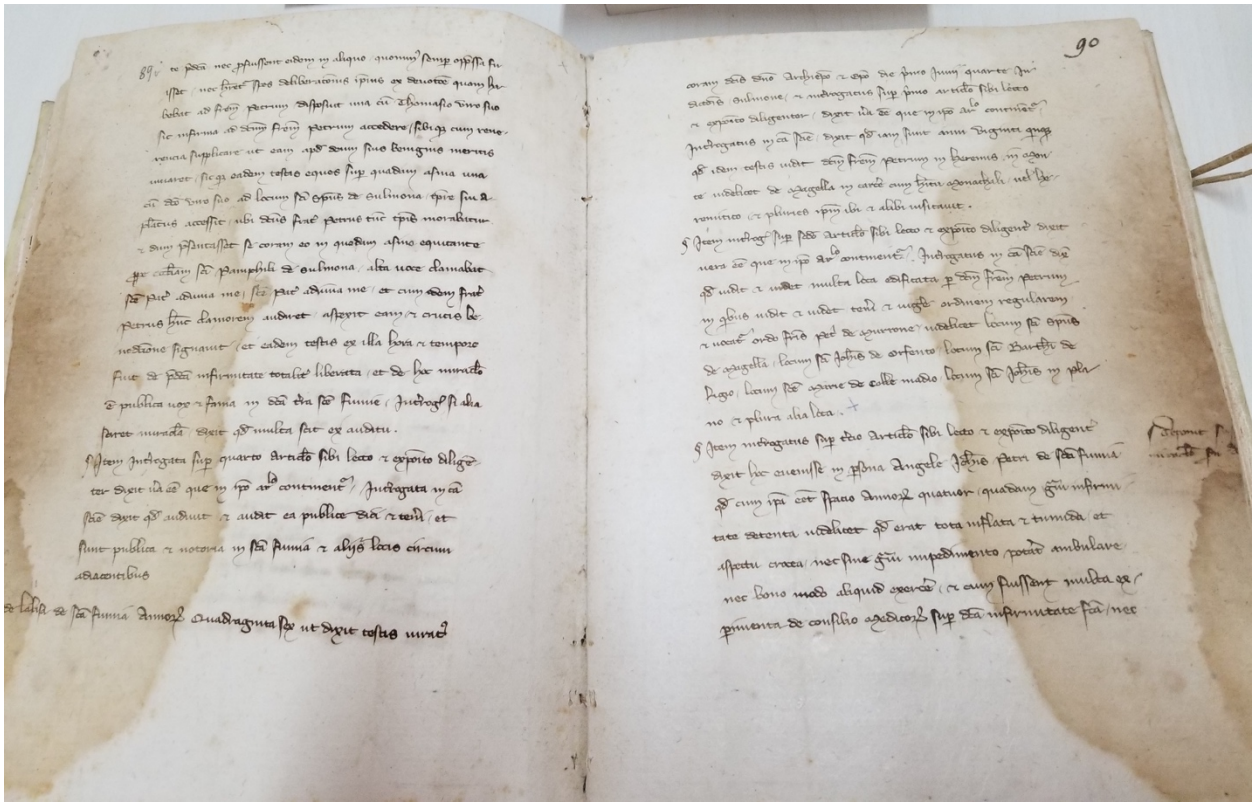 89
te p̄dc̄a nec ꝓfuissent eidem in aliquo
isset
bebat ad frēm Petrum disposuit una cū Thomasio viro suo
sic infirma ad dcm̄ frēm Petrum accedere sibiqꝫ cum reve-
rencia supplicare ut eam apd̄ deum suis benignis meritis
iuvaret eadem testis eques sup̱ quadam asina una
cū dc̄o viro suo ad locum sc̄i Sp̄us de Sulmona
accessit ubi dc̄us frat̄ Petrus tūc tp̄is morabatur
& dum p̄sentasset se coram eo in quodam asino equitante
sc̄i Pamphili de Sulmona alta voce clamabat
sc̄e Pat̄ adiuva me sc̄e Pat̄ adiuva me et cum frat̄
Petrus hūc clamorem audiret aspexit eam & crucis be
nedictione signavit et eadem testis ex illa hora & tempore
fuit de p̄dc̄a infirmitate totalit̄ liberata et de hoc miraclo
ē publica vox & fama in dc̄a t̄ra sc̄e Eufemie si alia
sciret miracla dixit qd̄ multa scit ex auditu
Item Int̄rogata sup̱ quarto Articlo sibi lecto & exposito dilige-
ter dixit v̄a eē que in ip̄o ar̄lo continent̄ Int̄rogata in cā
sciē dixit qd̄ audivit & audit ea publice dici & ten̄i et
sunt publica & notoria in & aliis locis circum
adiacentibus
Annoꝝ Quadraginta sex ut dixit testis iurat̄
90
coram dc̄o dn̄o Archiep̄o & ep̄o die p̄mo Iunii quarte In
dictōis Sulmone & int̄rogatus sup̱ p̄mo articlo sibi lecto
& exposito diligenter dixit v̄a eē que in ip̄o ar̄lo continent̄
Int̄rogatus in cā sciē dixit qd̄ iam sunt anni viginti
qd̄ idem testis vidit dcm̄ frēm Petrum in heremis in mon
te videlicet de Magella in carce cum h̄itu monachali vel he
remitico & pluries ip̄m ibi & alibi visitavit
Item int̄roḡ sup̱ sc̄do Articlo sibi lecto & exposito diligent̄ dixit
vera eē que in ip̄o ar̄lo continent̄ Int̄rogatus in cā sciē dix̄
qd̄ vidit & videt multa loca edificata ꝑ dcm̄ frēm Petrum
in qibus vidit & videt ten̄i & vige ordinem regularem
& vocat̄ ordo fr̄is Pet̄ de Murrone videlicet locum sc̄i Sp̄us
de Magella locum sc̄i Joh̄is de Orfento locum sc̄i Barth̄i de
Ligio locum sc̄e Marie de Colle madio locum sc̄i Joh̄is in pla
no & plura alia loca
Item int̄rogatus sup̱ t̄cio Articlo sibi lecto & exposito diligent̄
dixit hoc evenisse in ꝑsona Angele Joh̄is Petri de
qd̄ cum ip̄a eēt spacio Annoꝝ quatuor quadam infirmi
tate detenta videlicet qd̄ erat tota inflata & tumida et
aspectu crocea nec sine impedimento potat̄ ambulare
nec bono modo aliquid exerce & cum fuissent multa ex
perimenta de consilio medicoꝝ sup̱ dc̄a infirmitate fc̄a nec